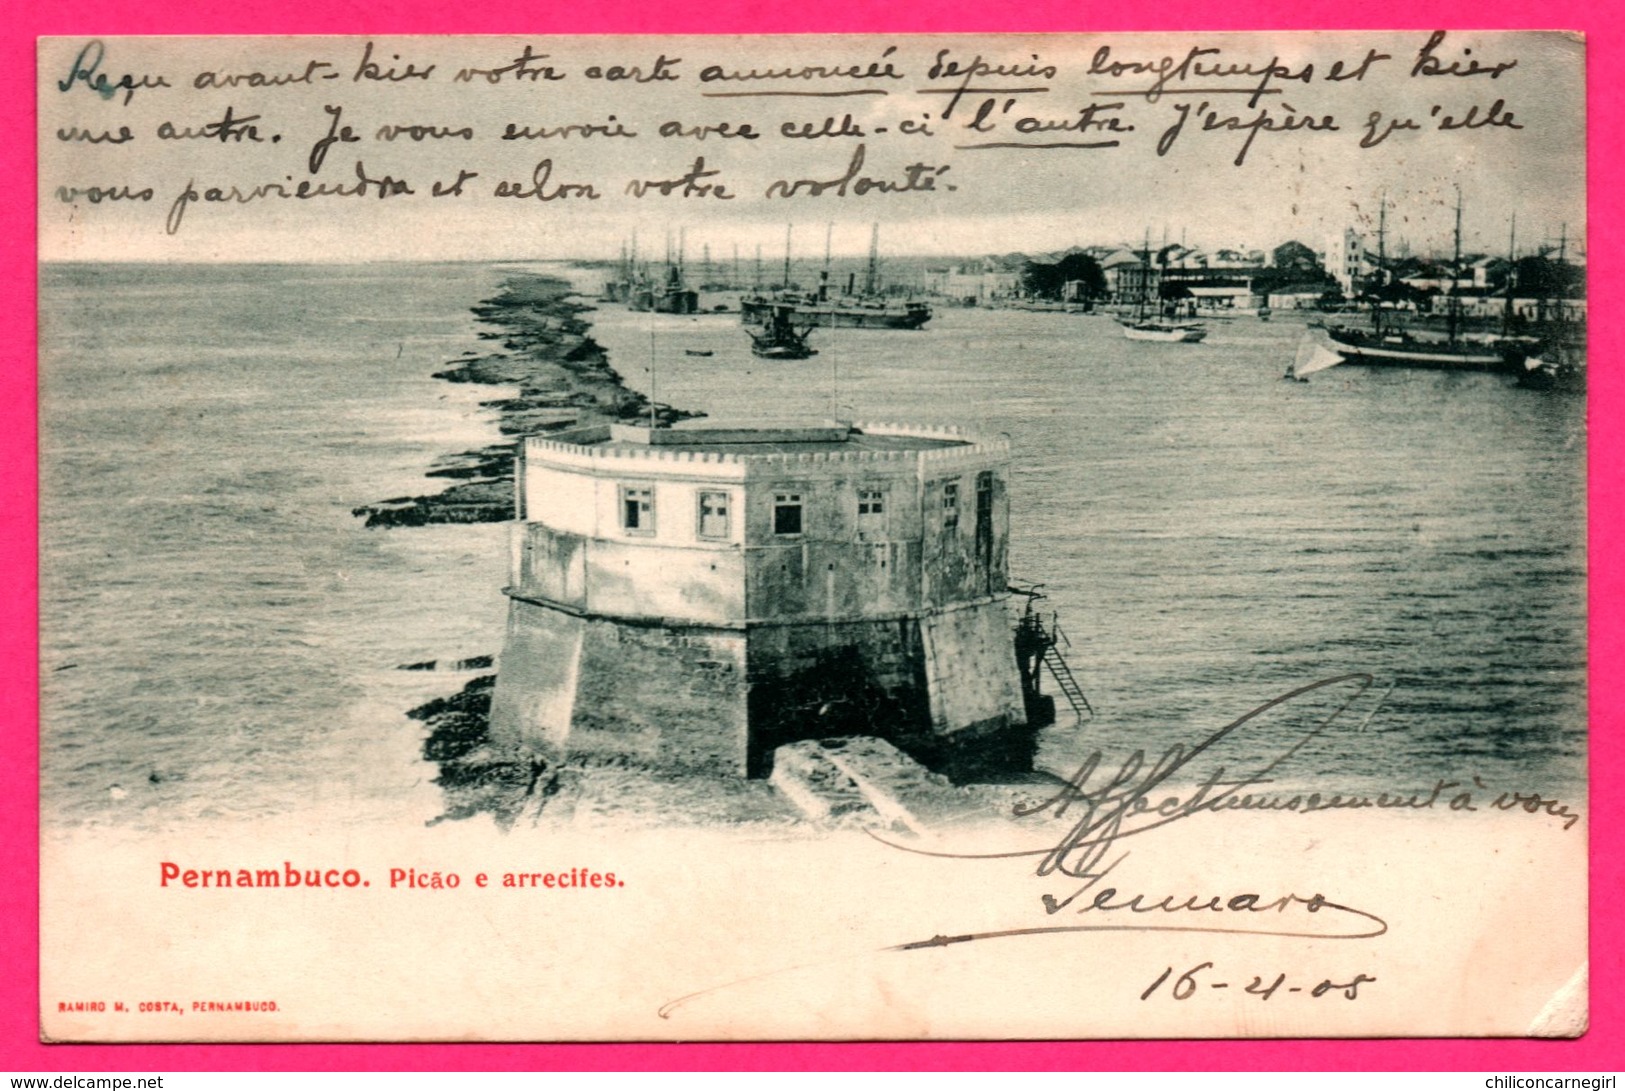 Reçu avant-hier votre carte annoncée depuis longtemps et hier
une autre. Je vous envoie avec celle-ci l'autre. J'espère qu'elle
vous parviendra et selon votre volonté.
Affectueusement à vous
Gennaro
16-4-05
Pernambuco. Picão e arrecifes.
RAMIRO M. COSTA, PERNAMBUCO.
www.delcampe.net
chiliconcarnegirl